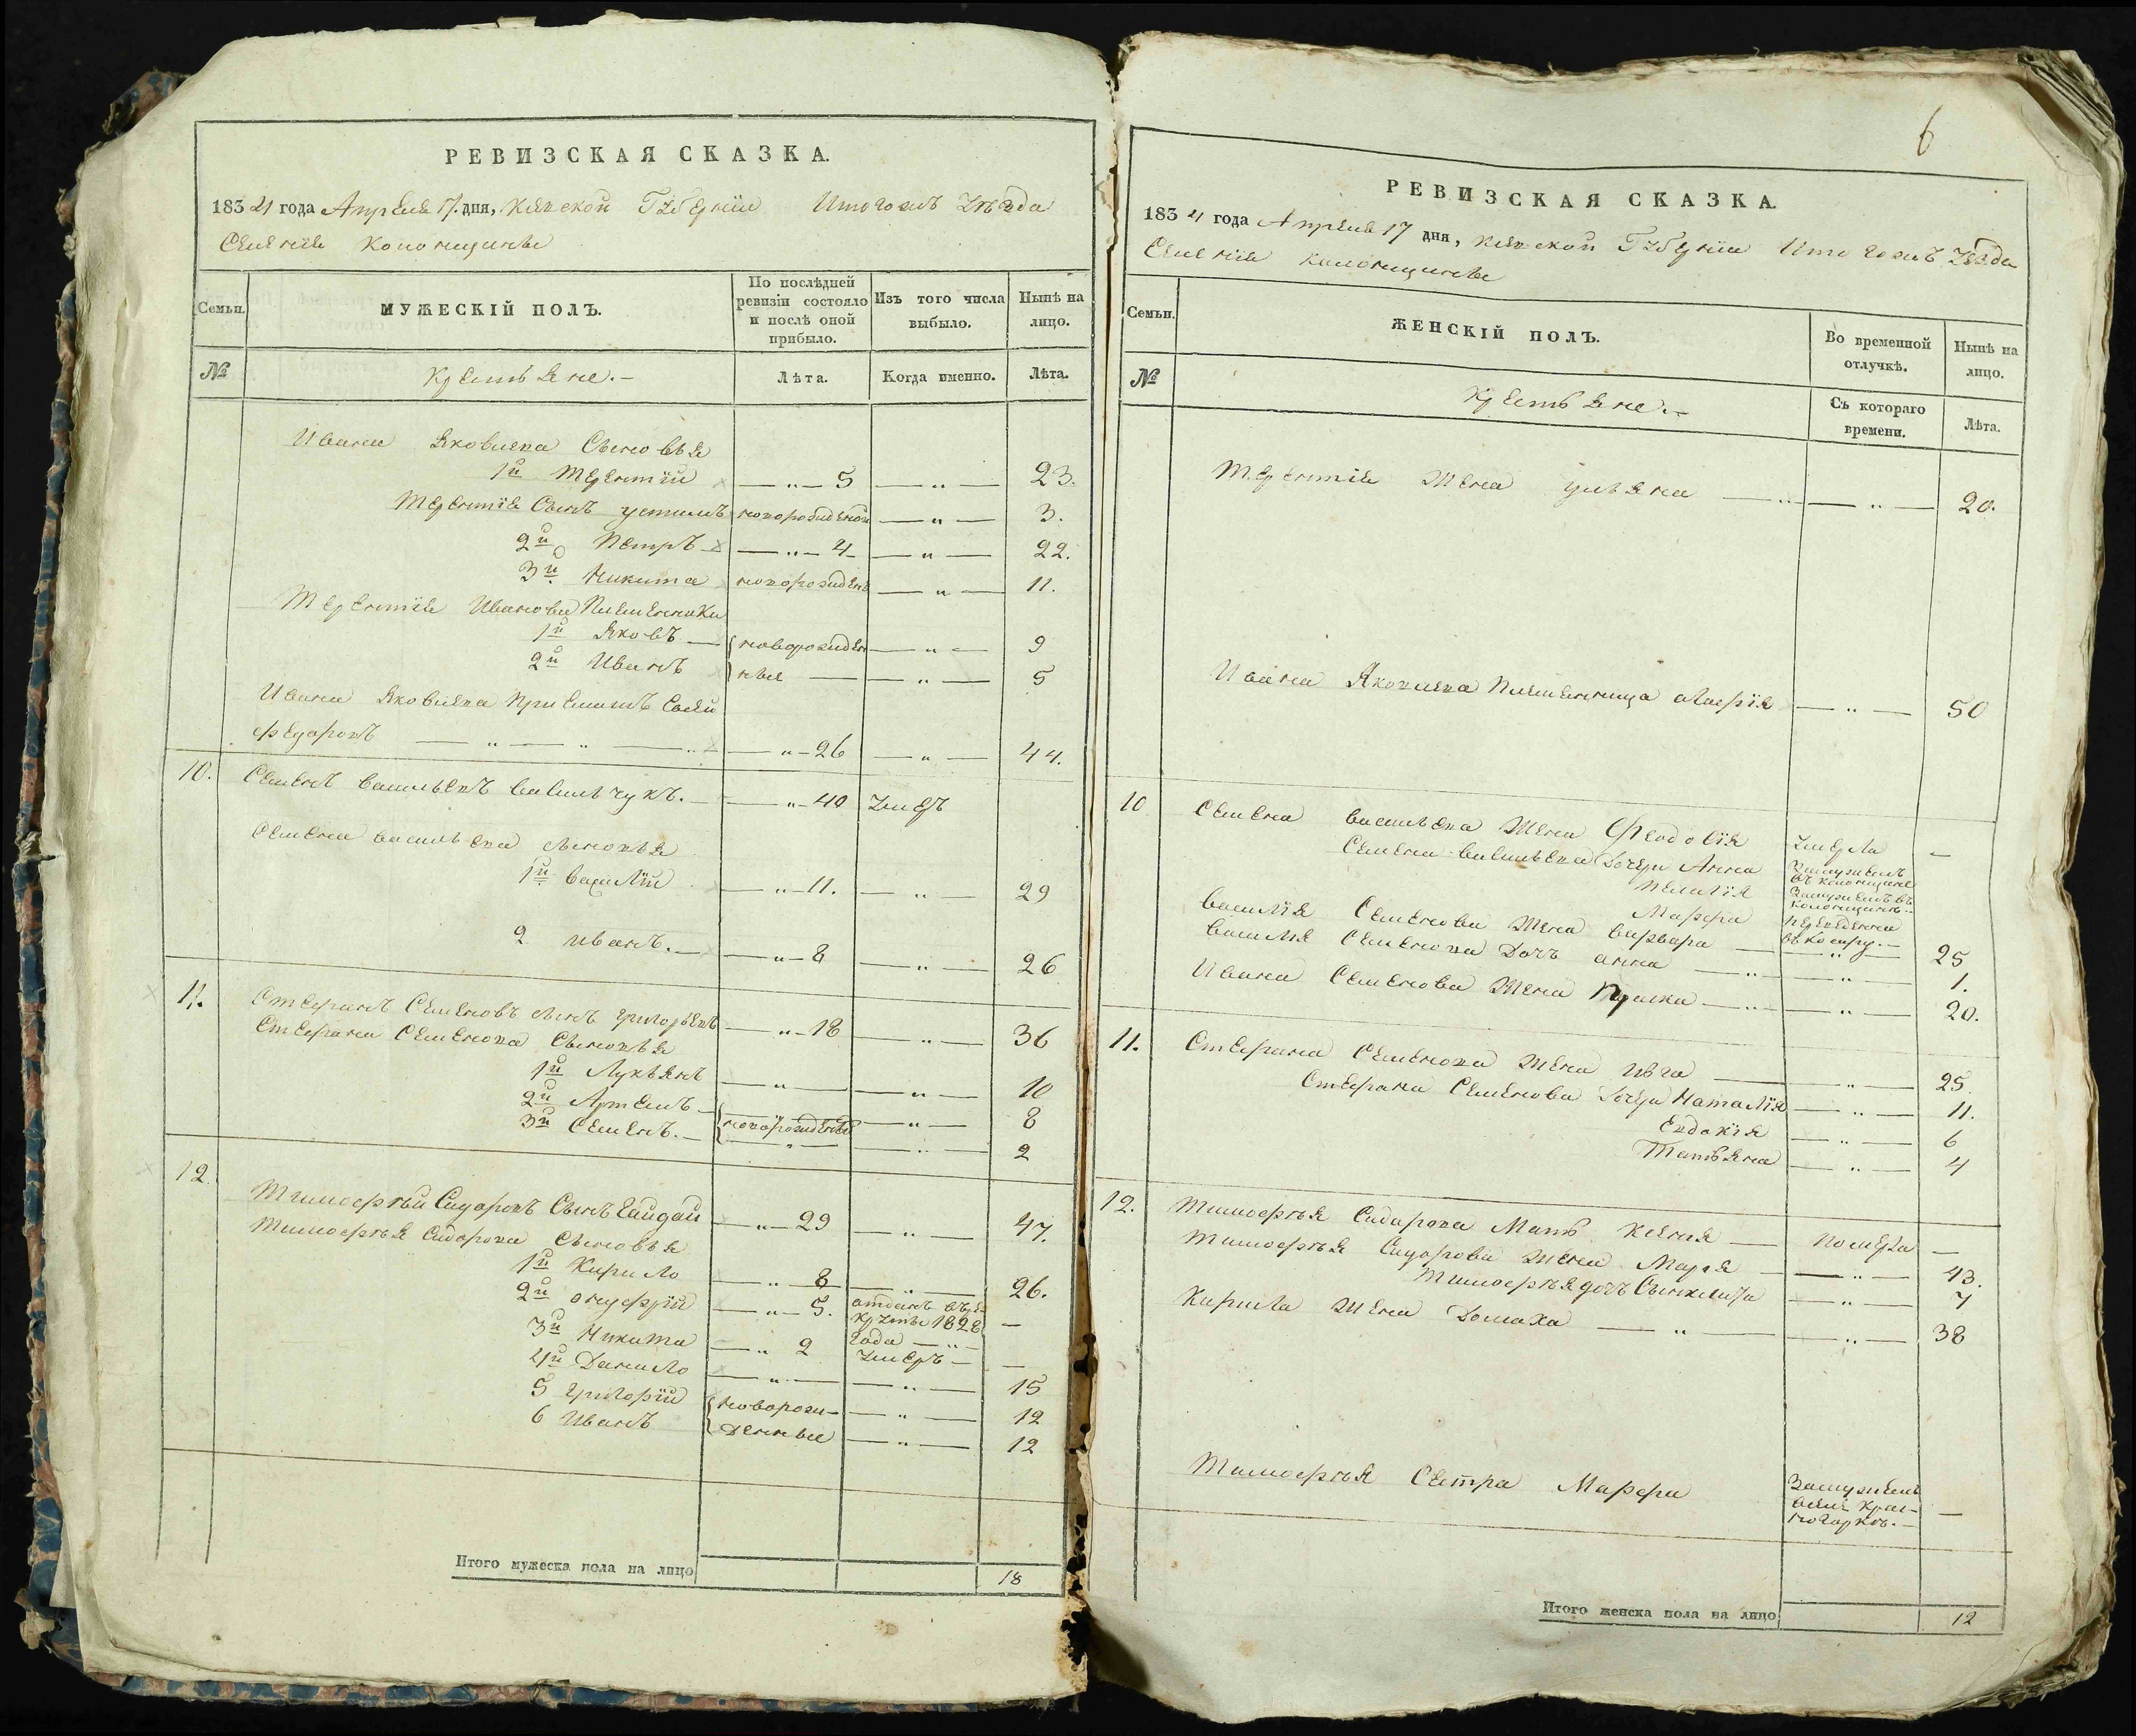 РЕВИЗСКАЯ СКАЗКА.
1834 года Апреля 17. дня, Киевской Губернии Уезда
Селения
Семьи.
МУЖЕСКІЙ ПОЛЪ.
По послѣдней ревизіи состояло и послѣ оной прибыло.
Изъ того числа выбыло.
Нынѣ на лицо.
№
Крестьяне.
Лѣта.
Когда именно.
Лѣта.
Ивана Яковлева Сыновья
1й Терентій — „ — 5 — „ — 23.
Терентія Сынъ Устимъ новорожденой — „ — 3.
2й Петръ — „ — 4 — „ — 22.
3й Никита новорожденъ — „ — 11.
Терентія Иванова Племенники
1й Яковъ — новорожден — „ — 9
2й Иванъ ные — „ — 5
Ивана Яковлева Приемышъ
Федоровъ — „ — „ — „ — 26 — „ — 44.
10. Семенъ Васильевъ Васильчукъ. — „ — 40 умеръ
Семена Васильева сыновья
1й Василій — „ — 11. — „ — 29
2 Иванъ. — „ — 8 — „ — 26
11. Стефанъ Семеновъ сынъ — „ — 18 — „ — 36
Стефана Семенова Сыновья
1й Лукьянъ — „ — „ — 10
2й Артемъ — новорожденые — „ — 8
3й Семенъ. — „ — „ — 2
12. Тимофѣй Сидоровъ Сынъ Гайдай — „ — 29 — „ — 47.
Тимофѣя Сидорова Сыновья
1й Кирило — „ — 8 — „ — 26.
2й Онуфрій — „ — 5. отданъ въ ре- —
круты 1828
3й Никита — „ 2 года — „ —
умеръ — —
4й Данило — „ — „ — 15
5 Григорій новорож- — „ — 12
6 Иванъ денные — „ — 12
Итого мужеска пола на лицо 18
6
РЕВИЗСКАЯ СКАЗКА.
1834 года Апреля 17 дня, Киевской Губернии Уезда
Селения
Семьи.
ЖЕНСКІЙ ПОЛЪ.
Во временной отлучкѣ.
Нынѣ на лицо.
№
Крестьяне.
Съ котораго времени.
Лѣта.
Терентія Жена Ульяна — „ — „ — 20.
Ивана Яковлева Племенница Марія — „ — 50
10 Семена Васильева Жена Феодосія умерла —
Семена Васильева дочери Анна Замужемъ
Марфа
Василія Семенова Жена Варвара — „ — 25
Василія Семенова Дочь Анна — „ — „ — 1.
Ивана Семенова Жена — „ — „ — 20.
11. Стефана Семенова Жена Ивга — „ — 25
Стефана Семенова дочери Наталія — „ — 11.
Евдокія — „ — 6
Татьяна — „ — 4
12. Тимофѣя Сидорова Мать Ксенія — Померла —
Тимофѣя Сидорова жена Марія — „ — 43.
Тимофѣя дочь — „ — 7
Кирила Жена Домаха — „ — „ — 38
Тимофѣя Сестра Марфа Замужемъ —
Итого женска пола на лицо 12